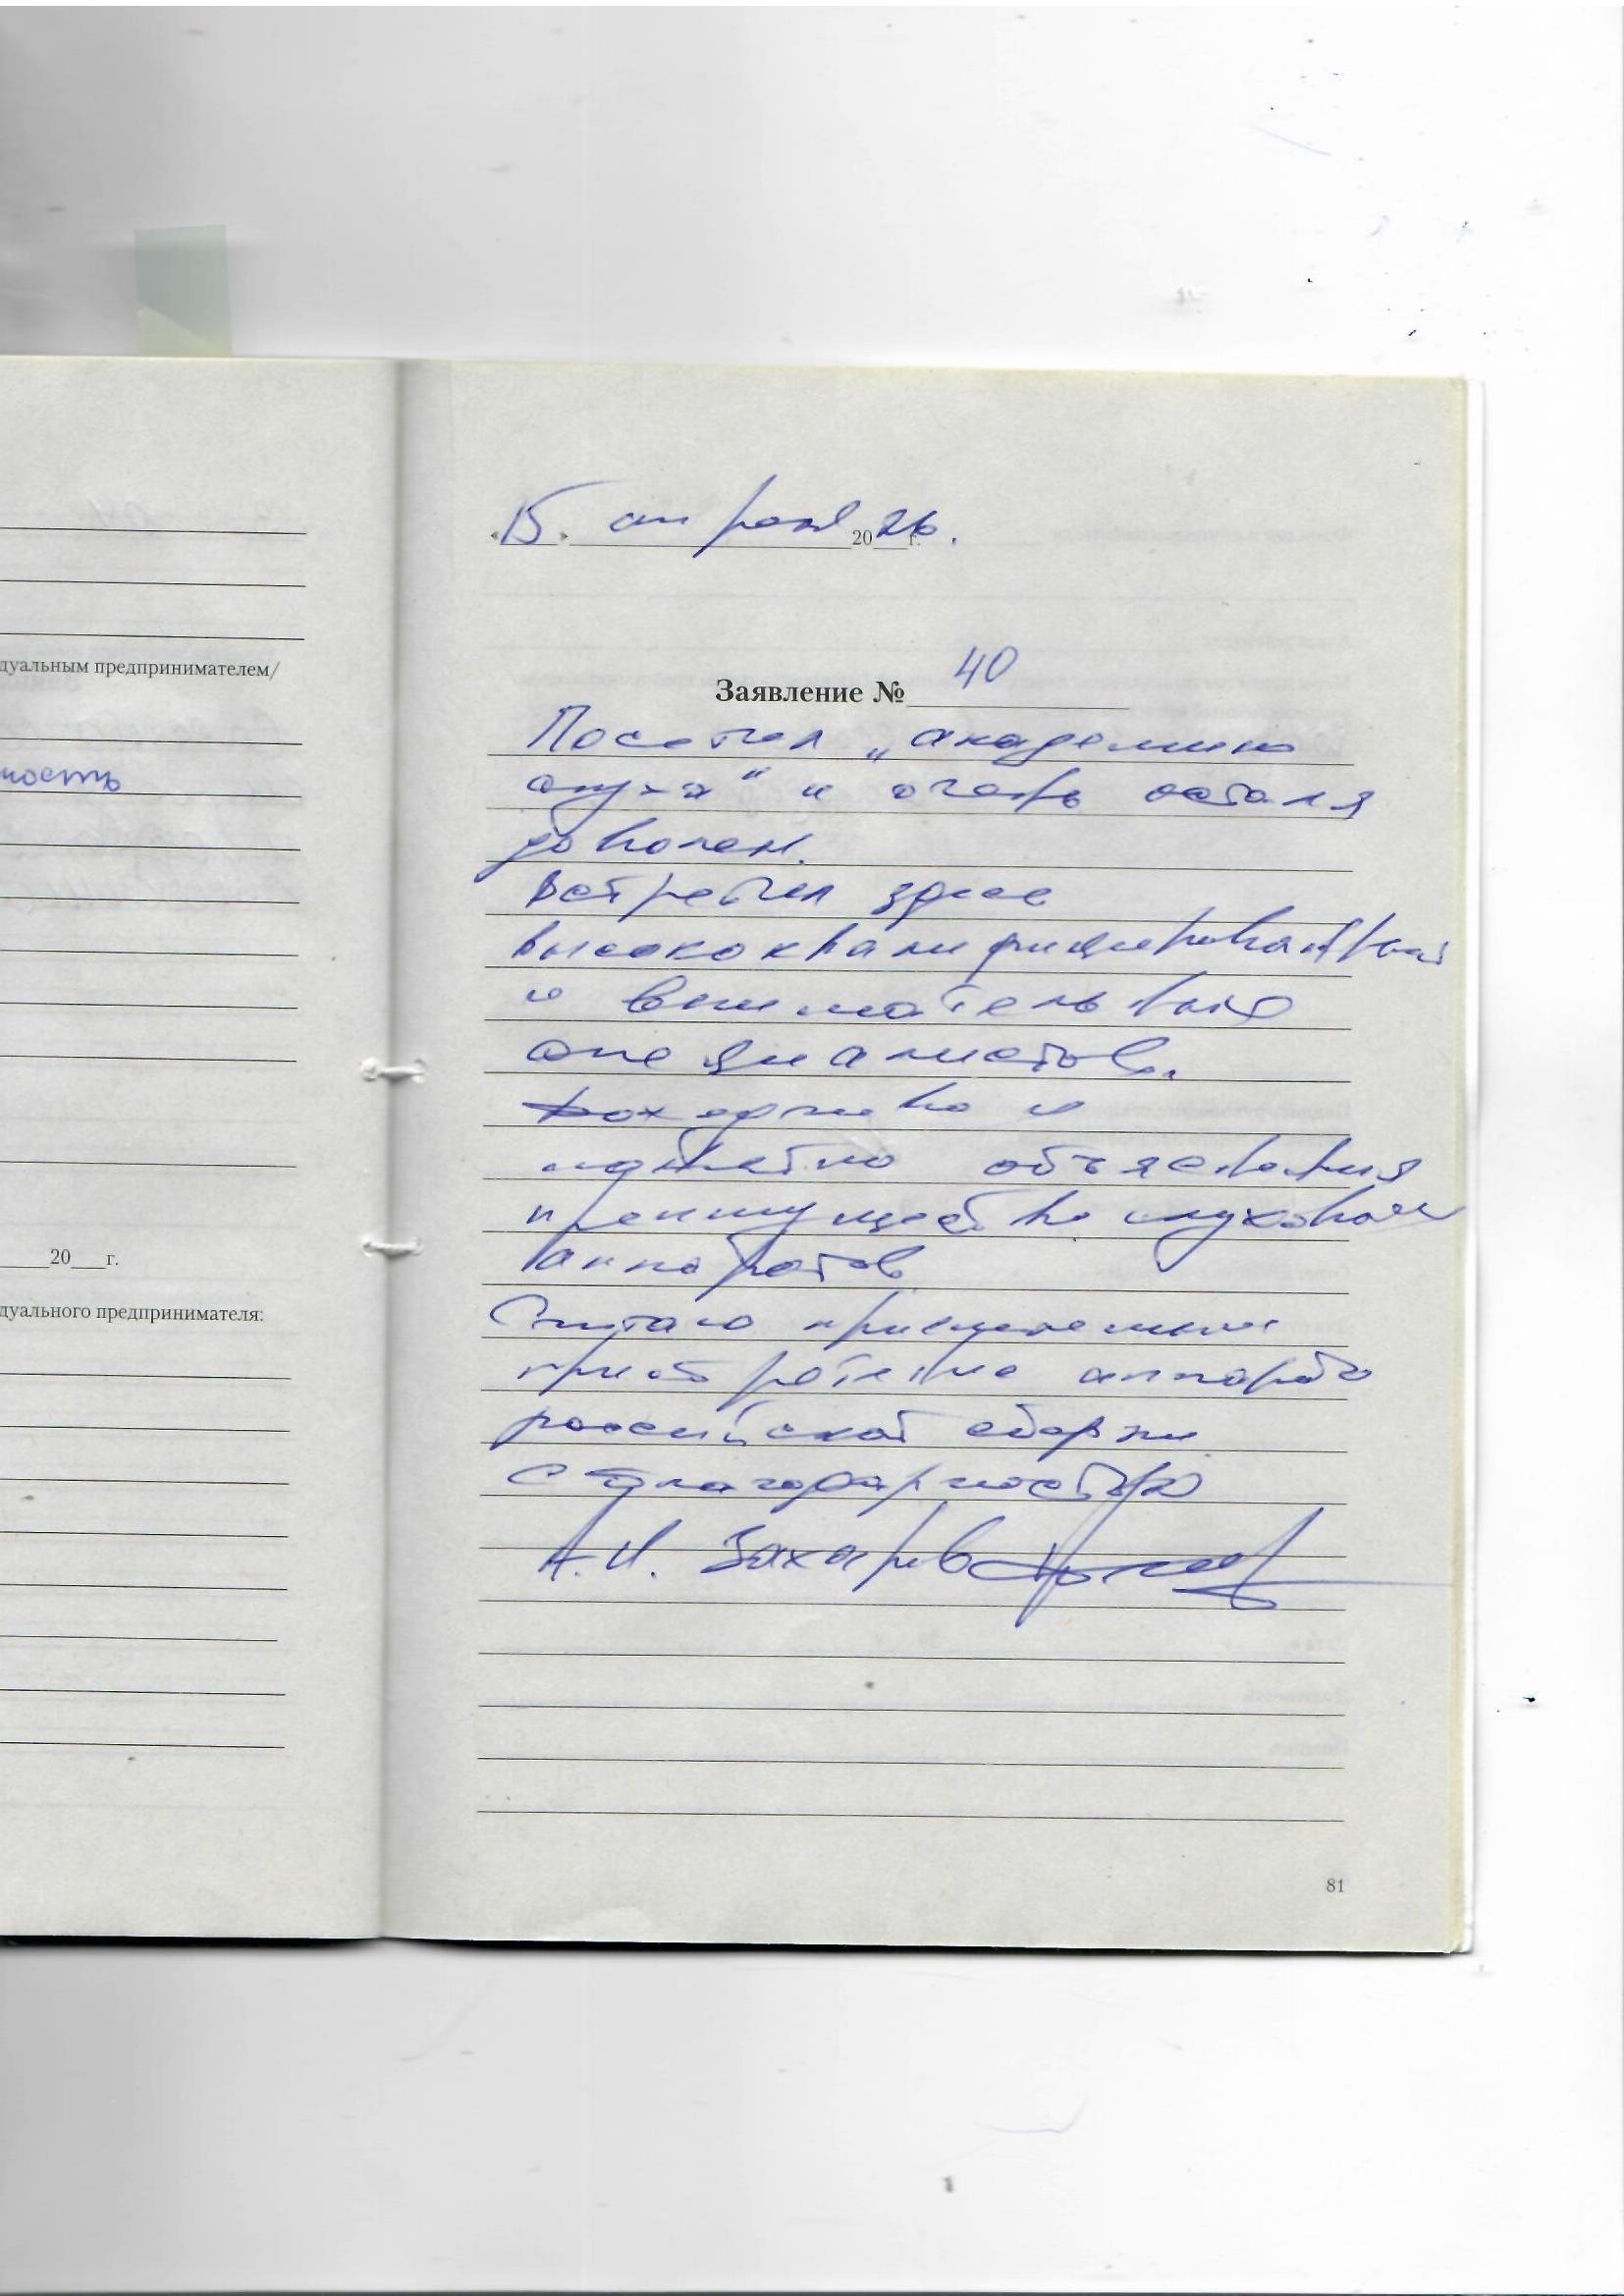 дуальным предпринимателем/
ность
20 г.
дуального предпринимателя:
«15» апреля 2026 г.
Заявление № 40
Посетил „академию
слуха“ и очень остался
доволен.
Встретил здесь
высококвалифицированных
и внимательных
специалистов.
Доходчиво и
понятно объяснения
преимущества слуховых
аппаратов
Считаю
приобретение аппарата
российской сборки
С благодарностью
А.И. Захаров
81